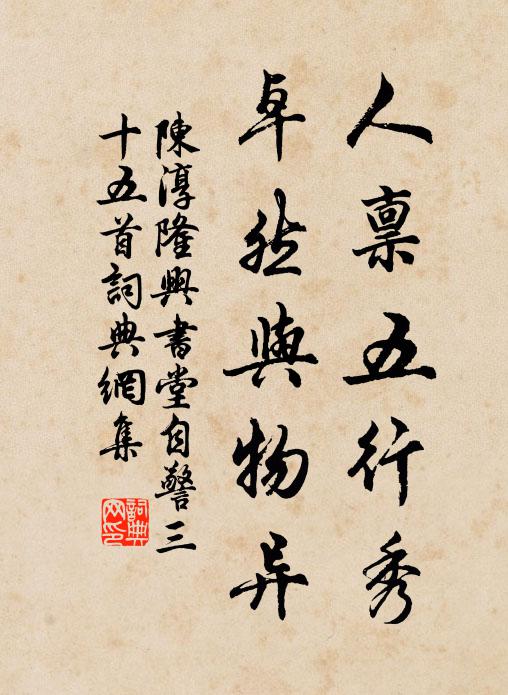 人稟五行秀
卓然與物异
陳淳隆興書堂自警三
十五首詞典網集
詞典网印